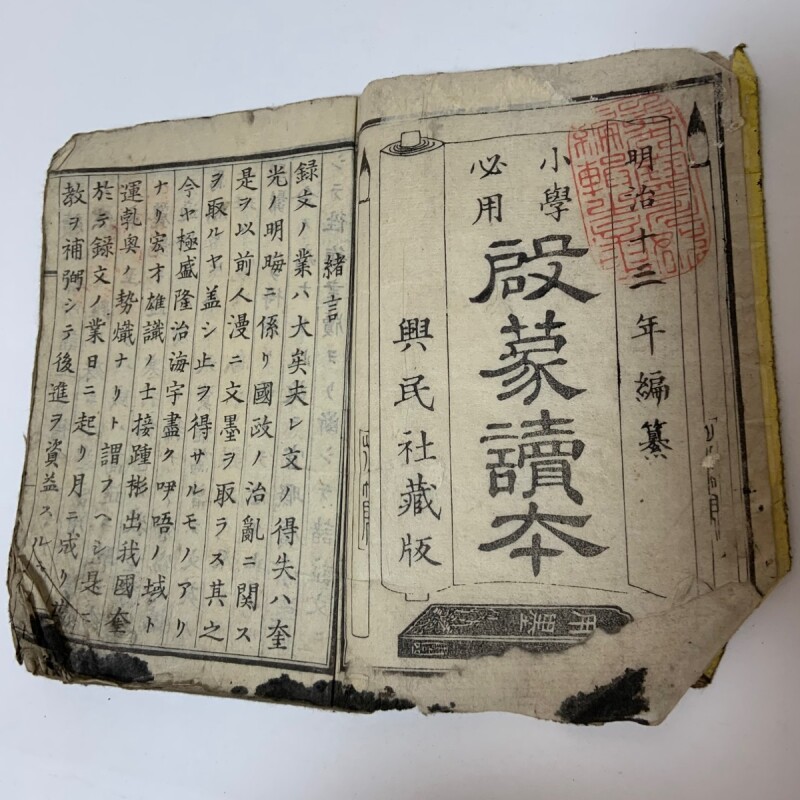 明治十三年編纂
小學
必用
啟蒙讀本
興民社藏版
緒言
録文ノ業ハ大矣夫レ文ノ得失ハ奎
光ノ明晦ニ係リ國政ノ治亂ニ関ス
是ヲ以前人漫ニ文墨ヲ取ラス其之
ヲ取ルヤ盖シ止ヲ得サルモノアリ
今ヤ極盛隆治海宇盡ク咿唔ノ域ト
ナリ宏才雄識ノ士接踵彬出我國奎
運乹奥ノ勢熾ナリト謂フヘシ是ニ
於テ録文ノ業日ニ起リ月ニ成リ
教ヲ補弼シテ後進ヲ資益スル